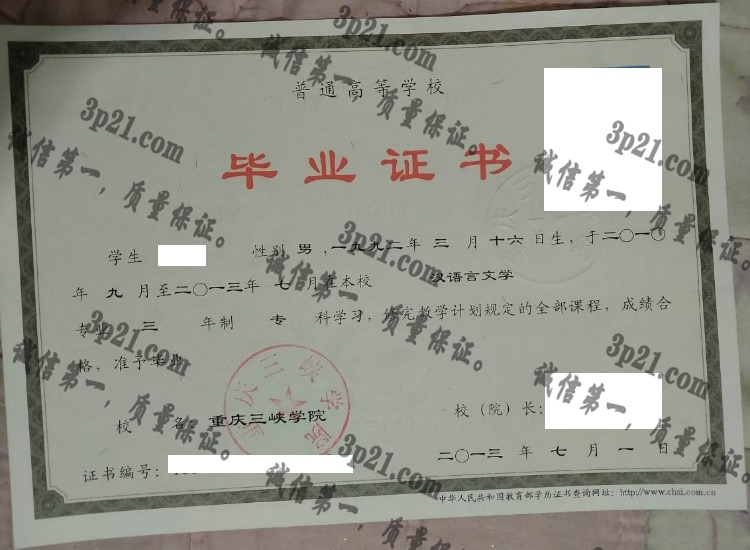 普通高等学校
毕业证书
学生 性别 男，一九九二年 三 月 十六 日生，于二〇一〇
年 九 月至二〇一三年 七 月在本校 汉语言文学
专业 三 年制 专 科学习，修完教学计划规定的全部课程，成绩合
格，准予毕业
校 名：重庆三峡学院
校（院）长：
证书编号：
二〇一三 年 七 月 一 日
中华人民共和国教育部学历证书查询网址：http://www.chsi.com.cn
重庆三峡学院
3p21.com
诚信第一，质量保证。
3p21.com
诚信第一，质量保证。
3p21.com
诚信第一，质量保证。
3p21.com
诚信第一，质量保证。
3p21.com
诚信第一，质量保证。
3p21.com
诚信第一，质量保证。
3p21.com
诚信第一，质量保证。